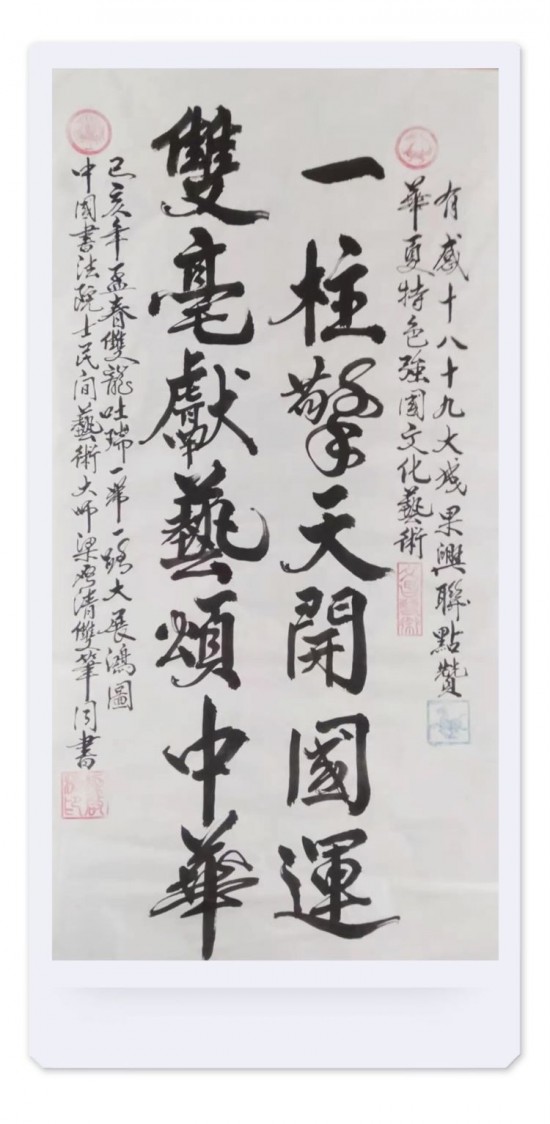 有感十八十九大成果興聯點贊
華夏特色強國文化藝術
一柱擎天開國運
雙毫獻藝頌中華
己亥年孟春雙龍吐瑞一帶一路大展鴻圖
中國書法院士民间藝術大师梁啓清雙筆同書